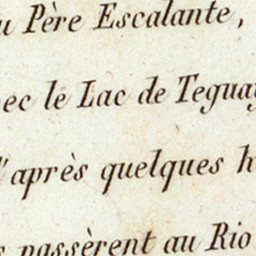 u Père Escalante,
ec le Lac de Teguay
d'après quelques h
s passèrent au Rio